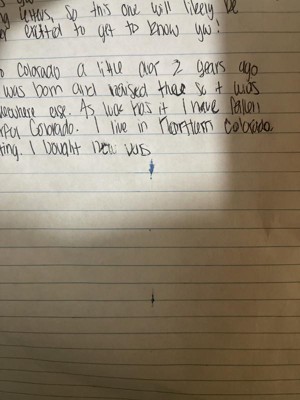 letters, so this one will likely be
excited to get to know you!
Colorado a little over 2 years ago
was born and raised there so it was
somewhere else. As luck has it I have fallen
Colorado. I live in Northern Colorado
I bought